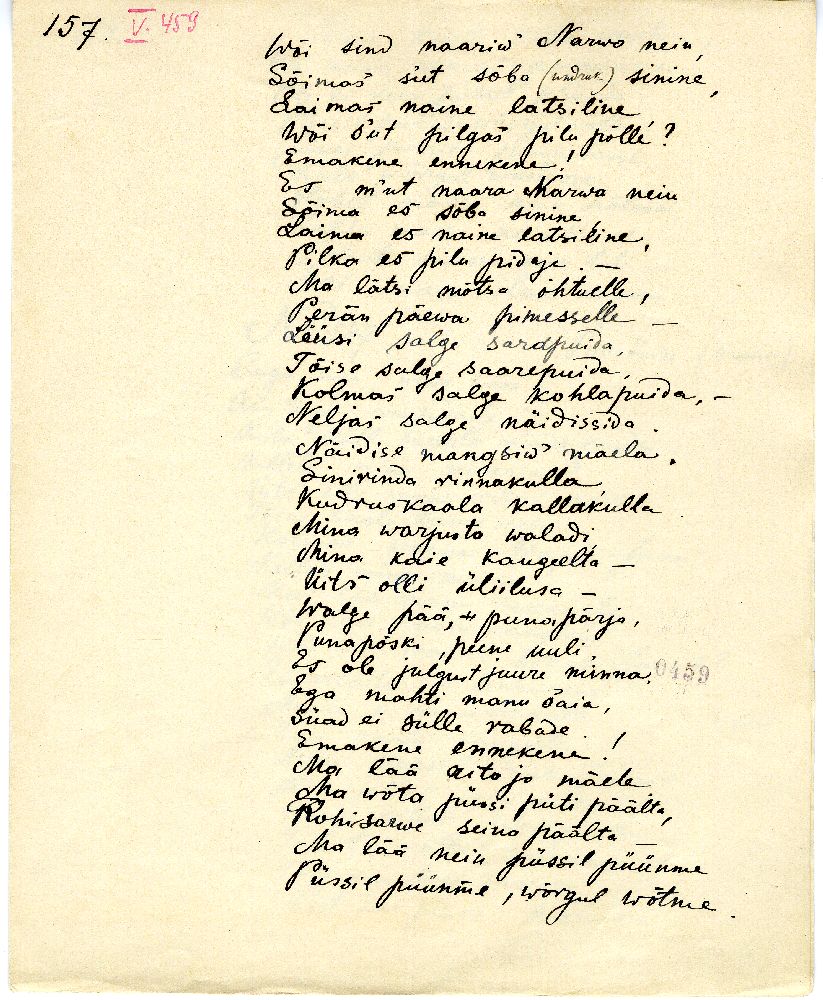 157. V. 459
Wõi sind naariw' Narwa neiu,
Sõimas' s'ut sõba (undruk) sinine,
Laimas' naine latsiline
Wõi s'ut pilgas' pilu põlle'?
Emakene ennekene!
Es m'ut naara Narwa neiu
Sõima es sõba sinine,
Laima es naine latsiline,
Pilka es pilu pidaja. —
Ma lätsi mõtsa õhtuelle,
Perän päewa pimesselle —
Lõüsi salge sarapuida,
Tõise salge saarepuida,
Kolmas' salge kohlapuida, —
Neljas' salge näidissida.
Näidise' mangsiw' mäela.
Sinirinda rinnakulla
Kudruskaala kallakulla
Mina warjusta waladi
Mina kaie kaugeelta —
Üits' olli üliilusa —
Walge pää, punapärja,
Punapõski, peene uuli,
Es ole julgust juure minna,
0459
Ega mahti manu saia,
Süad ei sülle rabade.
Emakene ennekene!
Ma lää aita ja mäele
Ma wõta püssi püti päälta,
Rohisarwe seina päälta —
Ma lää neiu püssil püünme
Püssil püünme, wõrgul wõtme.